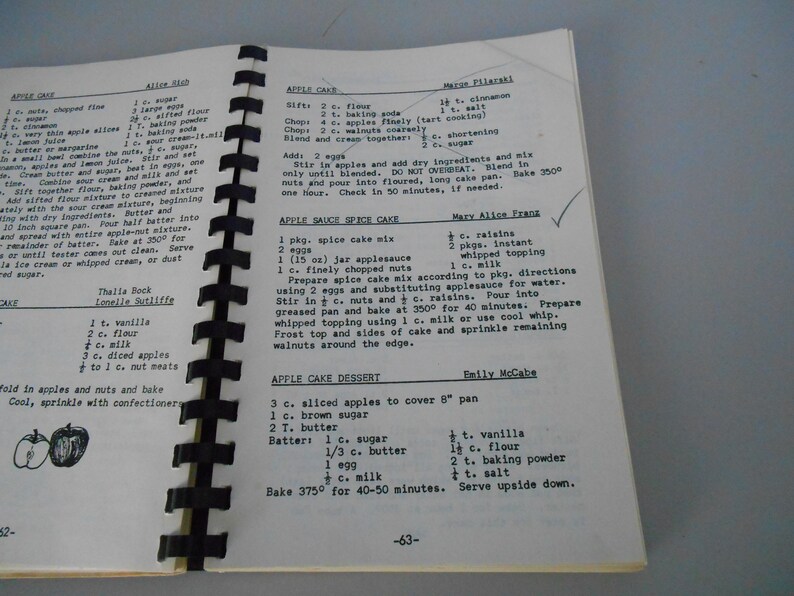 APPLE CAKE Alice Rich
1 c. nuts, chopped fine 1 c. sugar
½ c. sugar 3 large eggs
2 t. cinnamon 2½ c. sifted flour
1½ c. very thin apple slices 1 T. baking powder
t. lemon juice 1 t. baking soda
c. butter or margarine 1 c. sour cream-lt.mil
In a small bowl combine the nuts, ½ c. sugar,
namon, apples and lemon juice. Stir and set
de. Cream butter and sugar, beat in eggs, one
time. Combine sour cream and milk and set
Sift together flour, baking powder, and
Add sifted flour mixture to creamed mixture
ately with the sour cream mixture, beginning
ding with dry ingredients. Butter and
10 inch square pan. Pour half batter into
and spread with entire apple-nut mixture.
remainder of batter. Bake at 350º for
s or until tester comes out clean. Serve
la ice cream or whipped cream, or dust
red sugar.
Thalia Bock
CAKE Lonelle Sutliffe
1 t. vanilla
2 c. flour
¼ c. milk
3 c. diced apples
½ to 1 c. nut meats
fold in apples and nuts and bake
Cool, sprinkle with confectioners
62-
APPLE CAKE Marge Pilarski
Sift: 2 c. flour 1½ t. cinnamon
2 t. baking soda 1 t. salt
Chop: 4 c. apples finely (tart cooking)
Chop: 2 c. walnuts coarsely
Blend and cream together: ½ c. shortening
2 c. sugar
Add: 2 eggs
Stir in apples and add dry ingredients and mix
only until blended. DO NOT OVERBEAT. Blend in
nuts and pour into floured, long cake pan. Bake 350º
one hour. Check in 50 minutes, if needed.
APPLE SAUCE SPICE CAKE Mary Alice Franz
1 pkg. spice cake mix ½ c. raisins
2 eggs 2 pkgs. instant
1 (15 oz) jar applesauce whipped topping
1 c. finely chopped nuts 1 c. milk
Prepare spice cake mix according to pkg. directions
using 2 eggs and substituting applesauce for water.
Stir in ½ c. nuts and ½ c. raisins. Pour into
greased pan and bake at 350º for 40 minutes. Prepare
whipped topping using 1 c. milk or use cool whip.
Frost top and sides of cake and sprinkle remaining
walnuts around the edge.
APPLE CAKE DESSERT Emily McCabe
3 c. sliced apples to cover 8" pan
1 c. brown sugar
2 T. butter
Batter: 1 c. sugar ½ t. vanilla
1/3 c. butter 1½ c. flour
1 egg 2 t. baking powder
½ c. milk ¼ t. salt
Bake 375º for 40-50 minutes. Serve upside down.
-63-